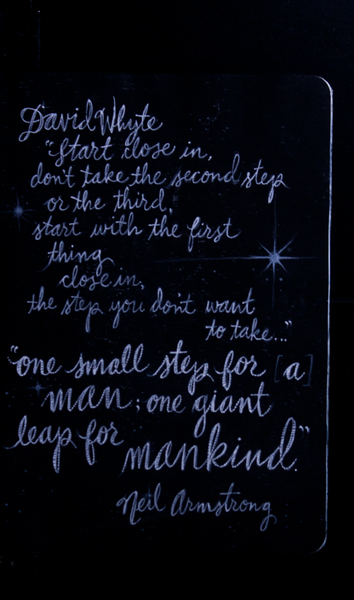 David Whyte
"Start close in,
don't take the second step
or the third,
start with the first
thing
close in,
the step you don't want
to take..."
"one small step for [a]
man; one giant
leap for
mankind."
Neil Armstrong